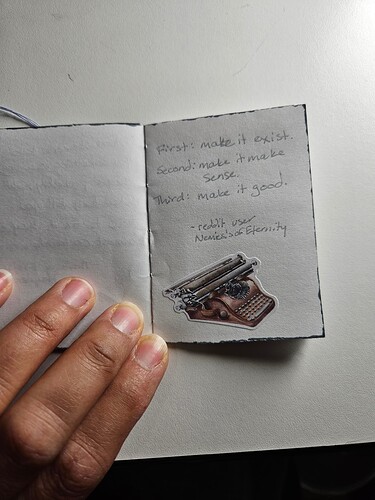 First: make it exist.
Second: make it make
sense.
Third: make it good.
- reddit user
Nemesis of Eternity